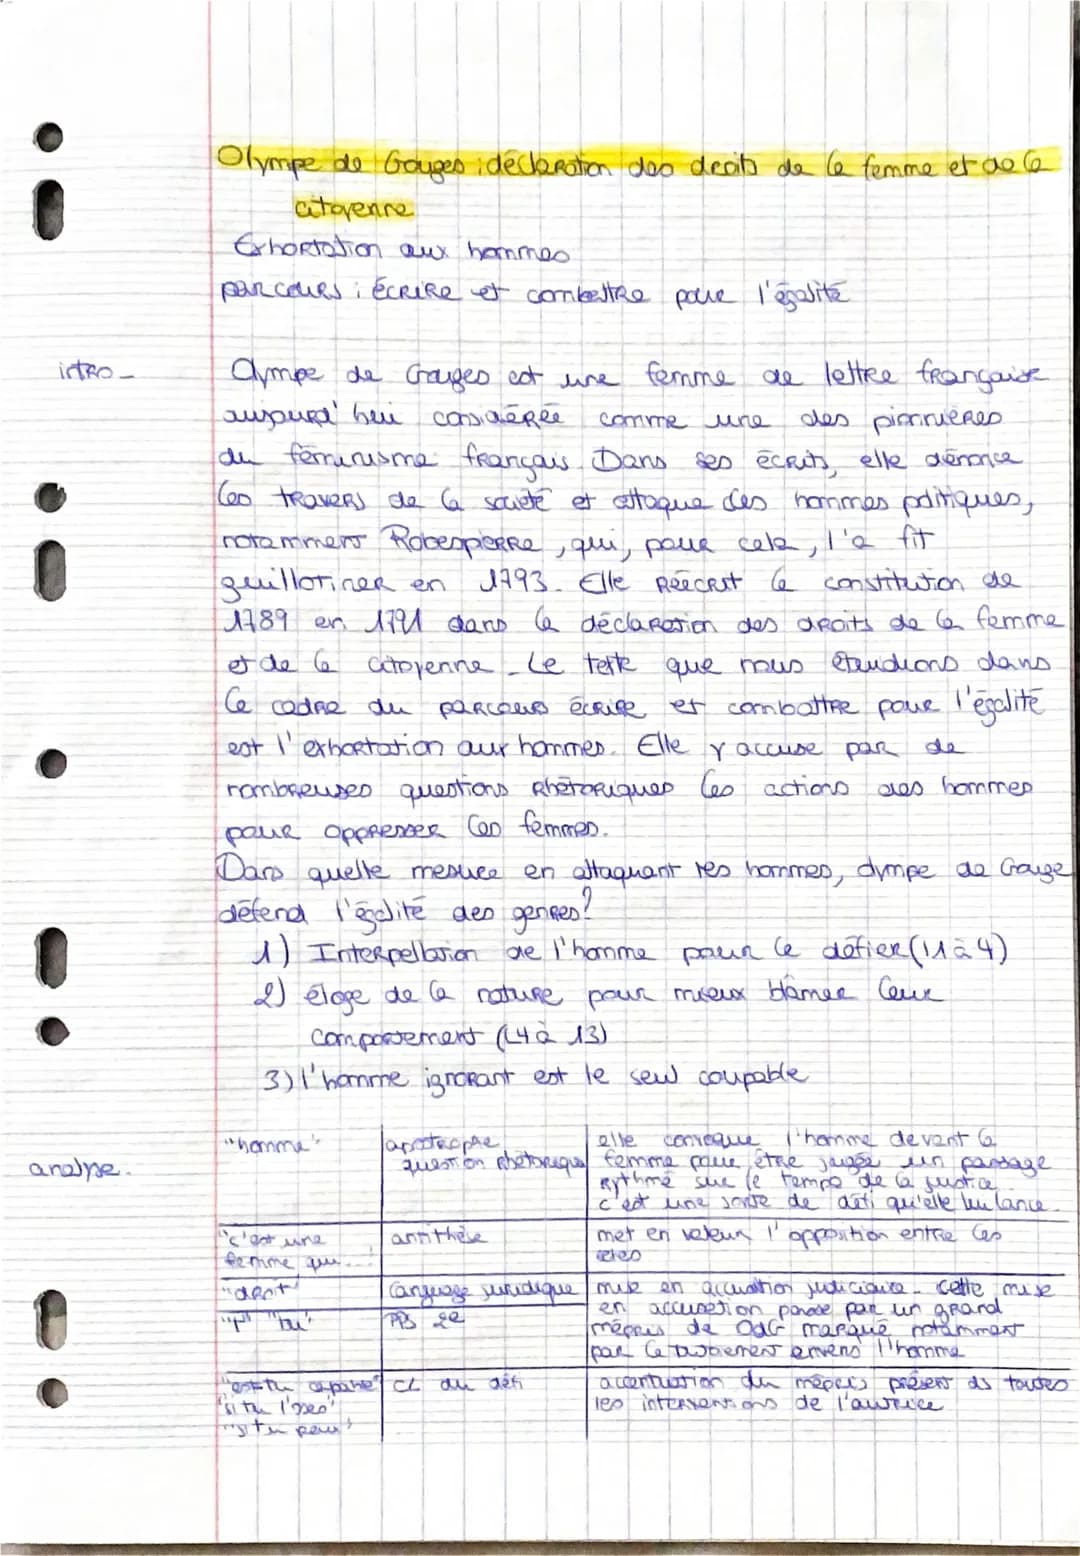 Olympe de Gouges : déclaration des droits de la femme et de la
citoyenne
Exhortation aux hommes
parcours : écrire et combattre pour l'égalité
intro -
Olympe de Gouges est une femme de lettre française
aujourd'hui considérée comme une des pionnières
du féminisme français. Dans ses écrits, elle dénonce
les travers de la société et attaque des hommes politiques,
notamment Robespierre, qui, pour cela, l'a fit
guillotiner en 1793. Elle réécrit la constitution de
1789 en 1791 dans la déclaration des droits de la femme
et de la citoyenne. Le texte que nous étudions dans
le cadre du parcours écrire et combattre pour l'égalité
est l'exhortation aux hommes. Elle y accuse par de
nombreuses questions rhétoriques les actions des hommes
pour oppresser les femmes.
Dans quelle mesure en attaquant les hommes, Olympe de Gouge
défend l'égalité des genres?
1) Interpellation de l'homme pour le défier (l1 à 4)
2) éloge de la nature pour mieux blâmer leur
comportement (L4 à 13)
3) l'homme ignorant est le seul coupable
analyse.
"homme" apostrophe question rhétorique elle convoque l'homme devant la
femme pour être jugée un passage
rythmé sur le tempo de la justice.
c'est une sorte de défi qu'elle lui lance.
"c'est une femme qui..." antithèse met en valeur l'opposition entre les
"droit" language juridique mise en accusation judiciaire. Cette mise
en accusation passe par un grand
"tu" PPS 2e mépris de OdG marqué notamment
par le tutoiement envers l'homme
"est-tu capable" CL du défi accentuation du mépris présent ds toutes
"si tu l'oses" les interventions de l'autrice
"si tu peux"